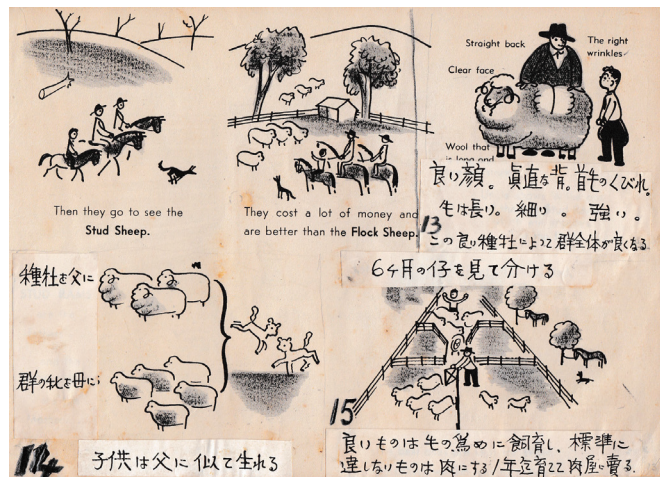 Then they go to see the
Stud Sheep.
They cost a lot of money and
are better than the Flock Sheep.
Straight back
The right
wrinkles
Clear face
Wool that
is long and
良い顔。真直な背。首毛のくびれ。
毛は長い。細い。強い。
13
この良い種牡によって群全体が良くなる
6ヶ月の仔を見て分ける
種牡を父に
群の牝を母に
14
子供は父に似て生れる
15
良いものは毛の為めに飼育し、標準に
達しないものは肉にする1年位育てて肉屋に賣る.